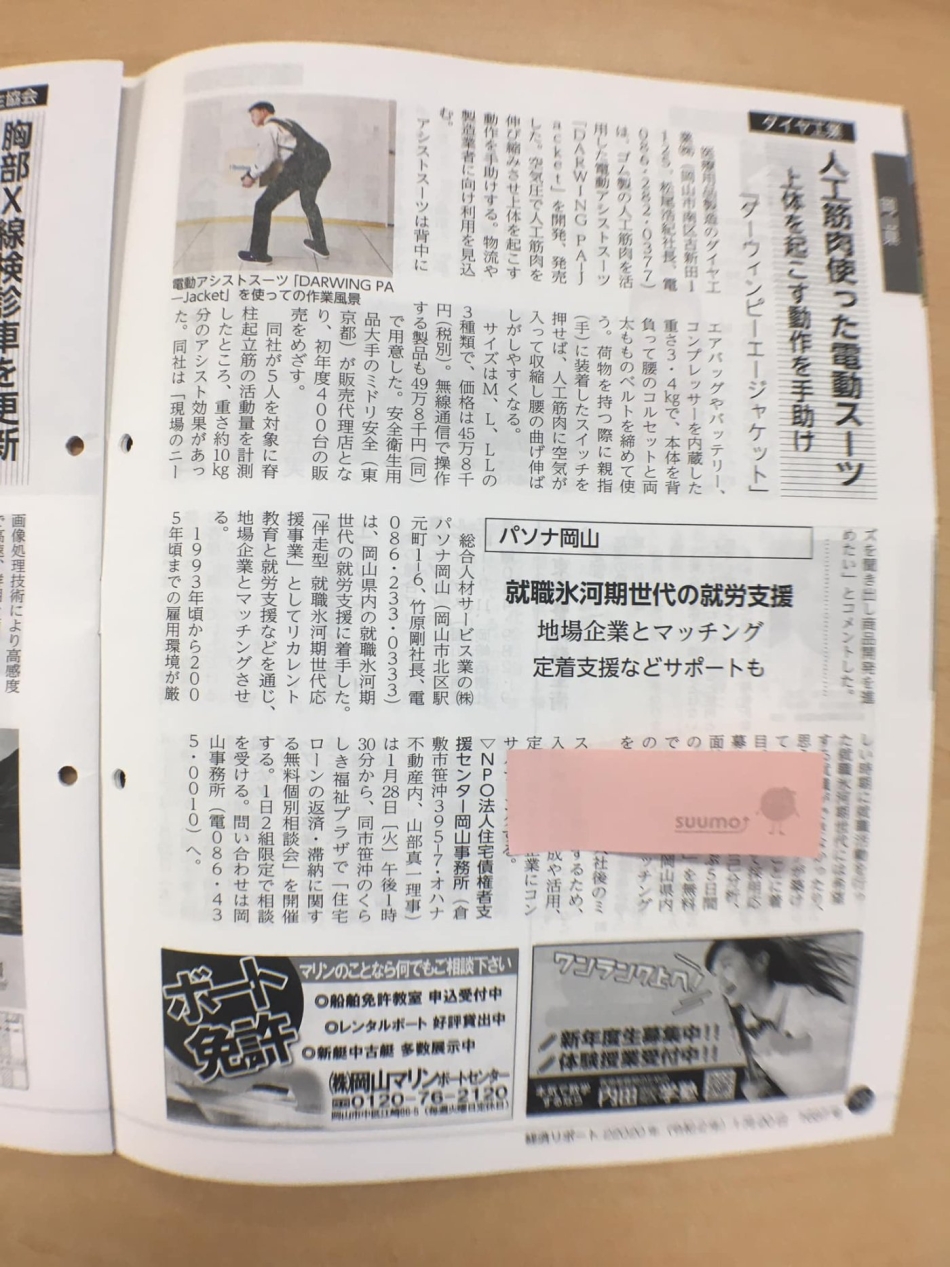 ダイヤ工業
人工筋肉使った電動スーツ
上体を起こす動作を手助け
「ダーウィンピーエージャケット」
医療用品製造のダイヤ工
業㈱（岡山市南区古新田1
125、松尾浩紀社長、電
086・282・0377）
は、ゴム製の人工筋肉を活
用した電動アシストスーツ
「DARWING PA—J
acket」を開発、発売
した。空気圧で人工筋肉を
伸び縮みさせ上体を起こす
動作を手助けする。物流や
製造業者に向け利用を見込
む。
アシストスーツは背中に
電動アシストスーツ「DARWING PA
—Jacket」を使っての作業風景
エアバッグやバッテリー、
コンプレッサーを内蔵した
重さ3・4kgで、本体を背
負って腰のコルセットと両
太もものベルトを締めて使
う。荷物を持つ際に親指
（手）に装着したスイッチを
押せば、人工筋肉に空気が
入って収縮し腰の曲げ伸ば
しがしやすくなる。
サイズはM、L、LLの
3種類で、価格は45万8千
円（税別）。無線通信で操作
する製品も49万8千円（同）
で用意した。安全衛生用
品大手のミドリ安全（東
京都）が販売代理店とな
り、初年度400台の販
売をめざす。
同社が5人を対象に脊
柱起立筋の活動量を計測
したところ、重さ約10kg
分のアシスト効果があっ
た。同社は「現場のニー
ズを聞き出し商品開発を進
めたい」とコメントした。
パソナ岡山
就職氷河期世代の就労支援
地場企業とマッチング
定着支援などサポートも
総合人材サービス業の㈱
パソナ岡山（岡山市北区駅
元町1-6、竹原剛社長、電
086・233・0333）
は、岡山県内の就職氷河期
世代の就労支援に着手した。
「伴走型 就職氷河期世代応
援事業」としてリカレント
教育と就労支援などを通じ、
地場企業とマッチングさせ
る。
1993年頃から200
5年頃までの雇用環境が厳
しい時期に就職活動を行っ
た就職氷河期世代には希望
suumo
▽NPO法人住宅債権者支
援センター岡山事務所（倉
敷市笹沖395-7・オハナ
不動産内、山部真一理事）
は1月28日［火］午後1時
30分から、同市笹沖のくら
しき福祉プラザで「住宅
ローンの返済・滞納に関す
る無料個別相談会」を開催
する。1日2組限定で相談
を受ける。問い合わせは岡
山事務所（電086・43
5・0010）へ。
ボート
免許
マリンのことなら何でもご相談下さい
◎船舶免許教室 申込受付中
◎レンタルボート 好評貸出中
◎新艇中古艇 多数展示中
㈱岡山マリンボートセンター
0120-76-2120
ワンランク上へ!
新年度生募集中!!
体験授業受付中!!
経済リポート 2020年（令和2年）1月20日
胸部X線検診車を更新
画像処理技術により高感度